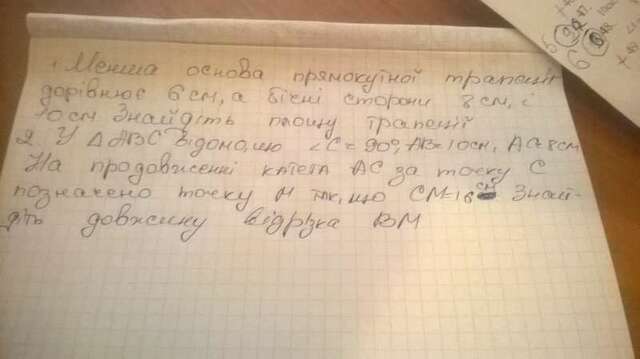 1. Менша основа прямокутної трапеції
дорівнює 6 см, а бічні сторони 8 см, і
10 см Знайдіть площу трапеції
2. У △ABC відомо, що ∠C = 90°, AB = 10 см, AC = 8 см
На продовженні катета AC за точку C
позначено точку M так, що CM = 16 см Знай-
діть довжину відрізка BM